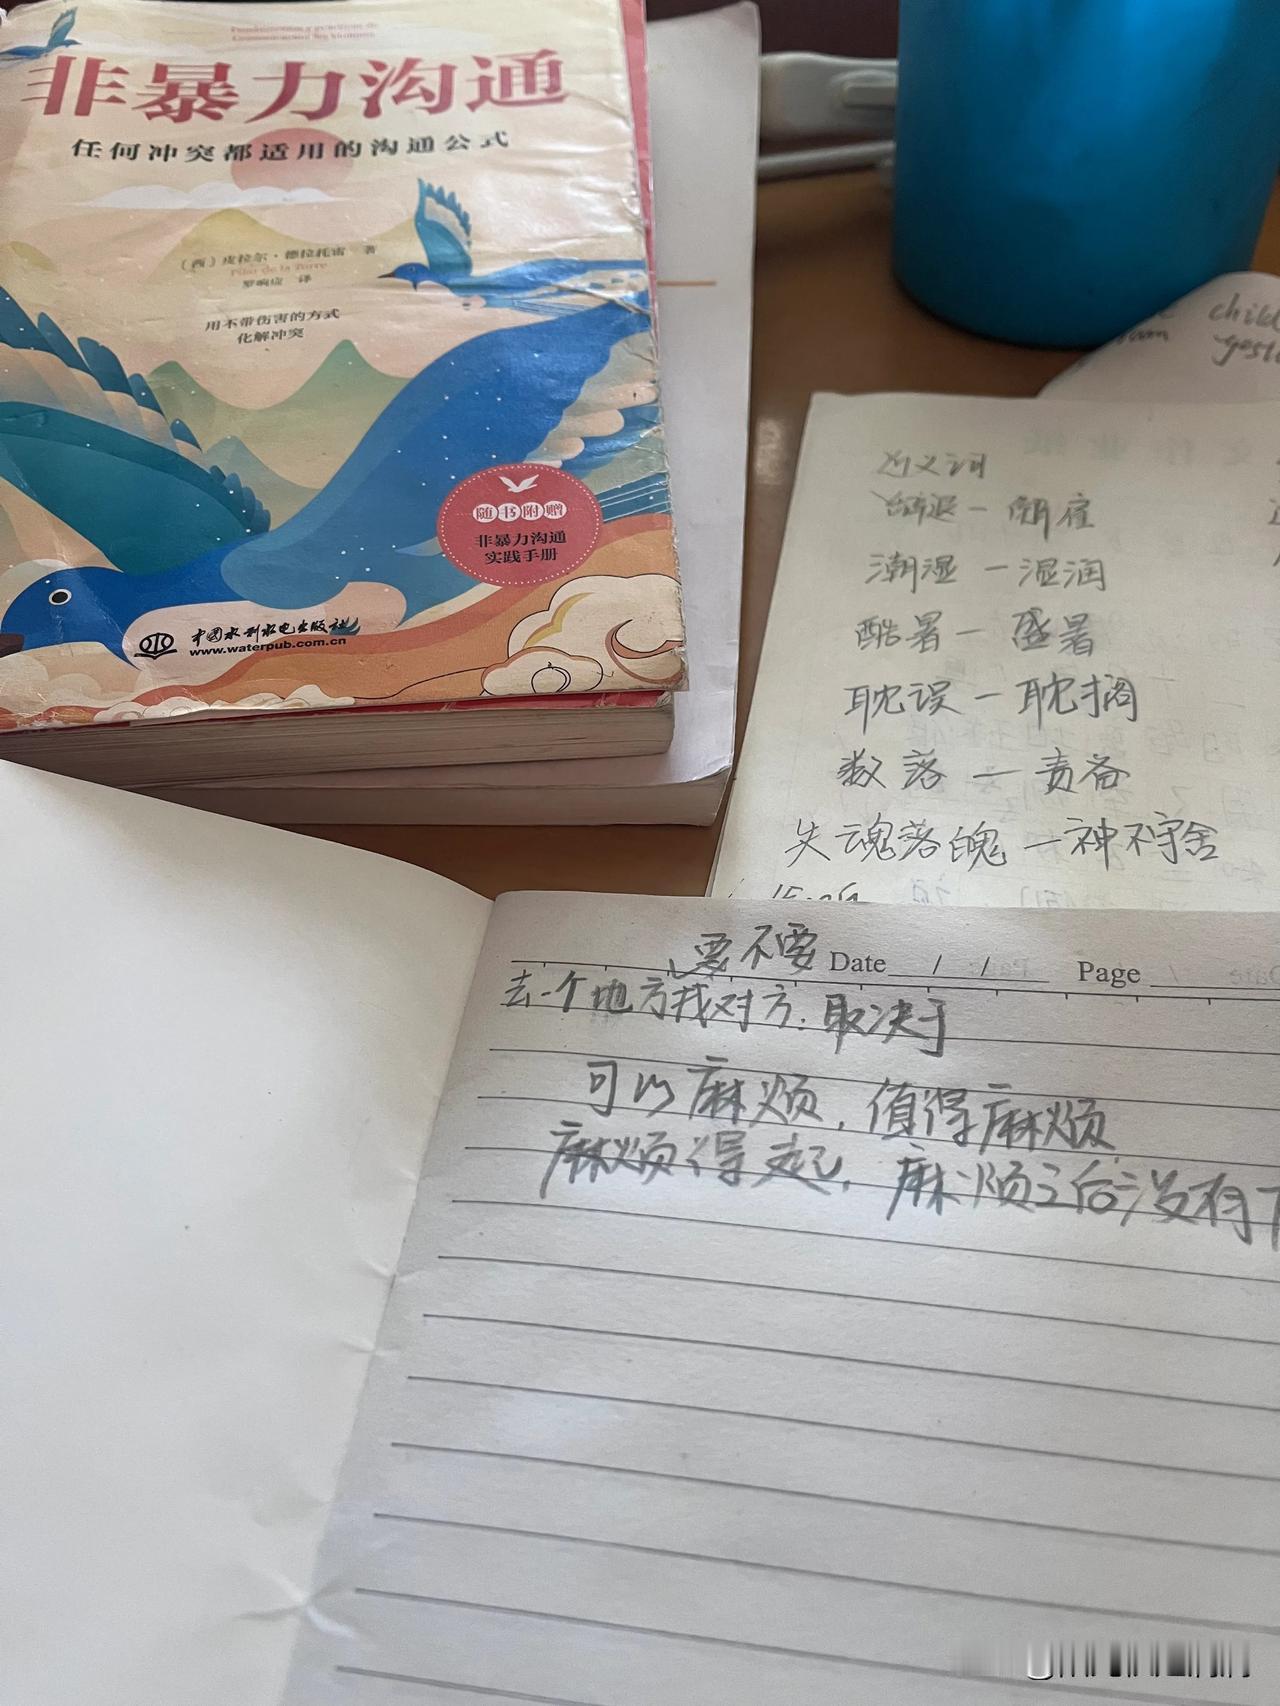 非暴力沟通
任何冲突都适用的沟通公式
（西）皮拉尔·德拉托雷 著
Pilar de la Torre
罗响应 译
用不带伤害的方式
化解冲突
随书附赠
非暴力沟通
实践手册
中国水利水电出版社
www.waterpub.com.cn
child
近义词
辞退－解雇
潮湿－湿润
酷暑－盛暑
耽误－耽搁
数落－责备
失魂落魄－神不守舍
要不要
Date / / Page
去一个地方找对方.取决于
可以麻烦，值得麻烦
麻烦得起，麻烦之后没有